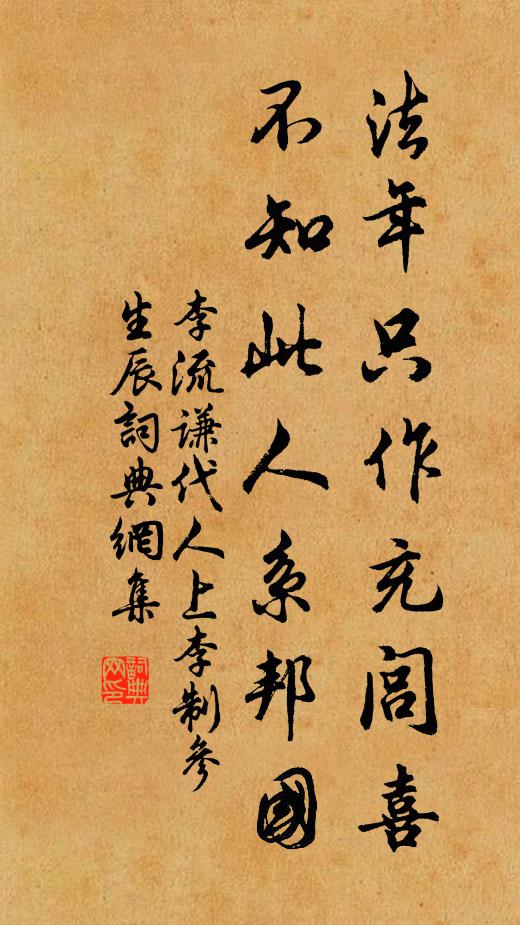 法年只作充闾喜
不知此人系邦國
李流谦代人上李制參
生辰詞典網集
詞典網印